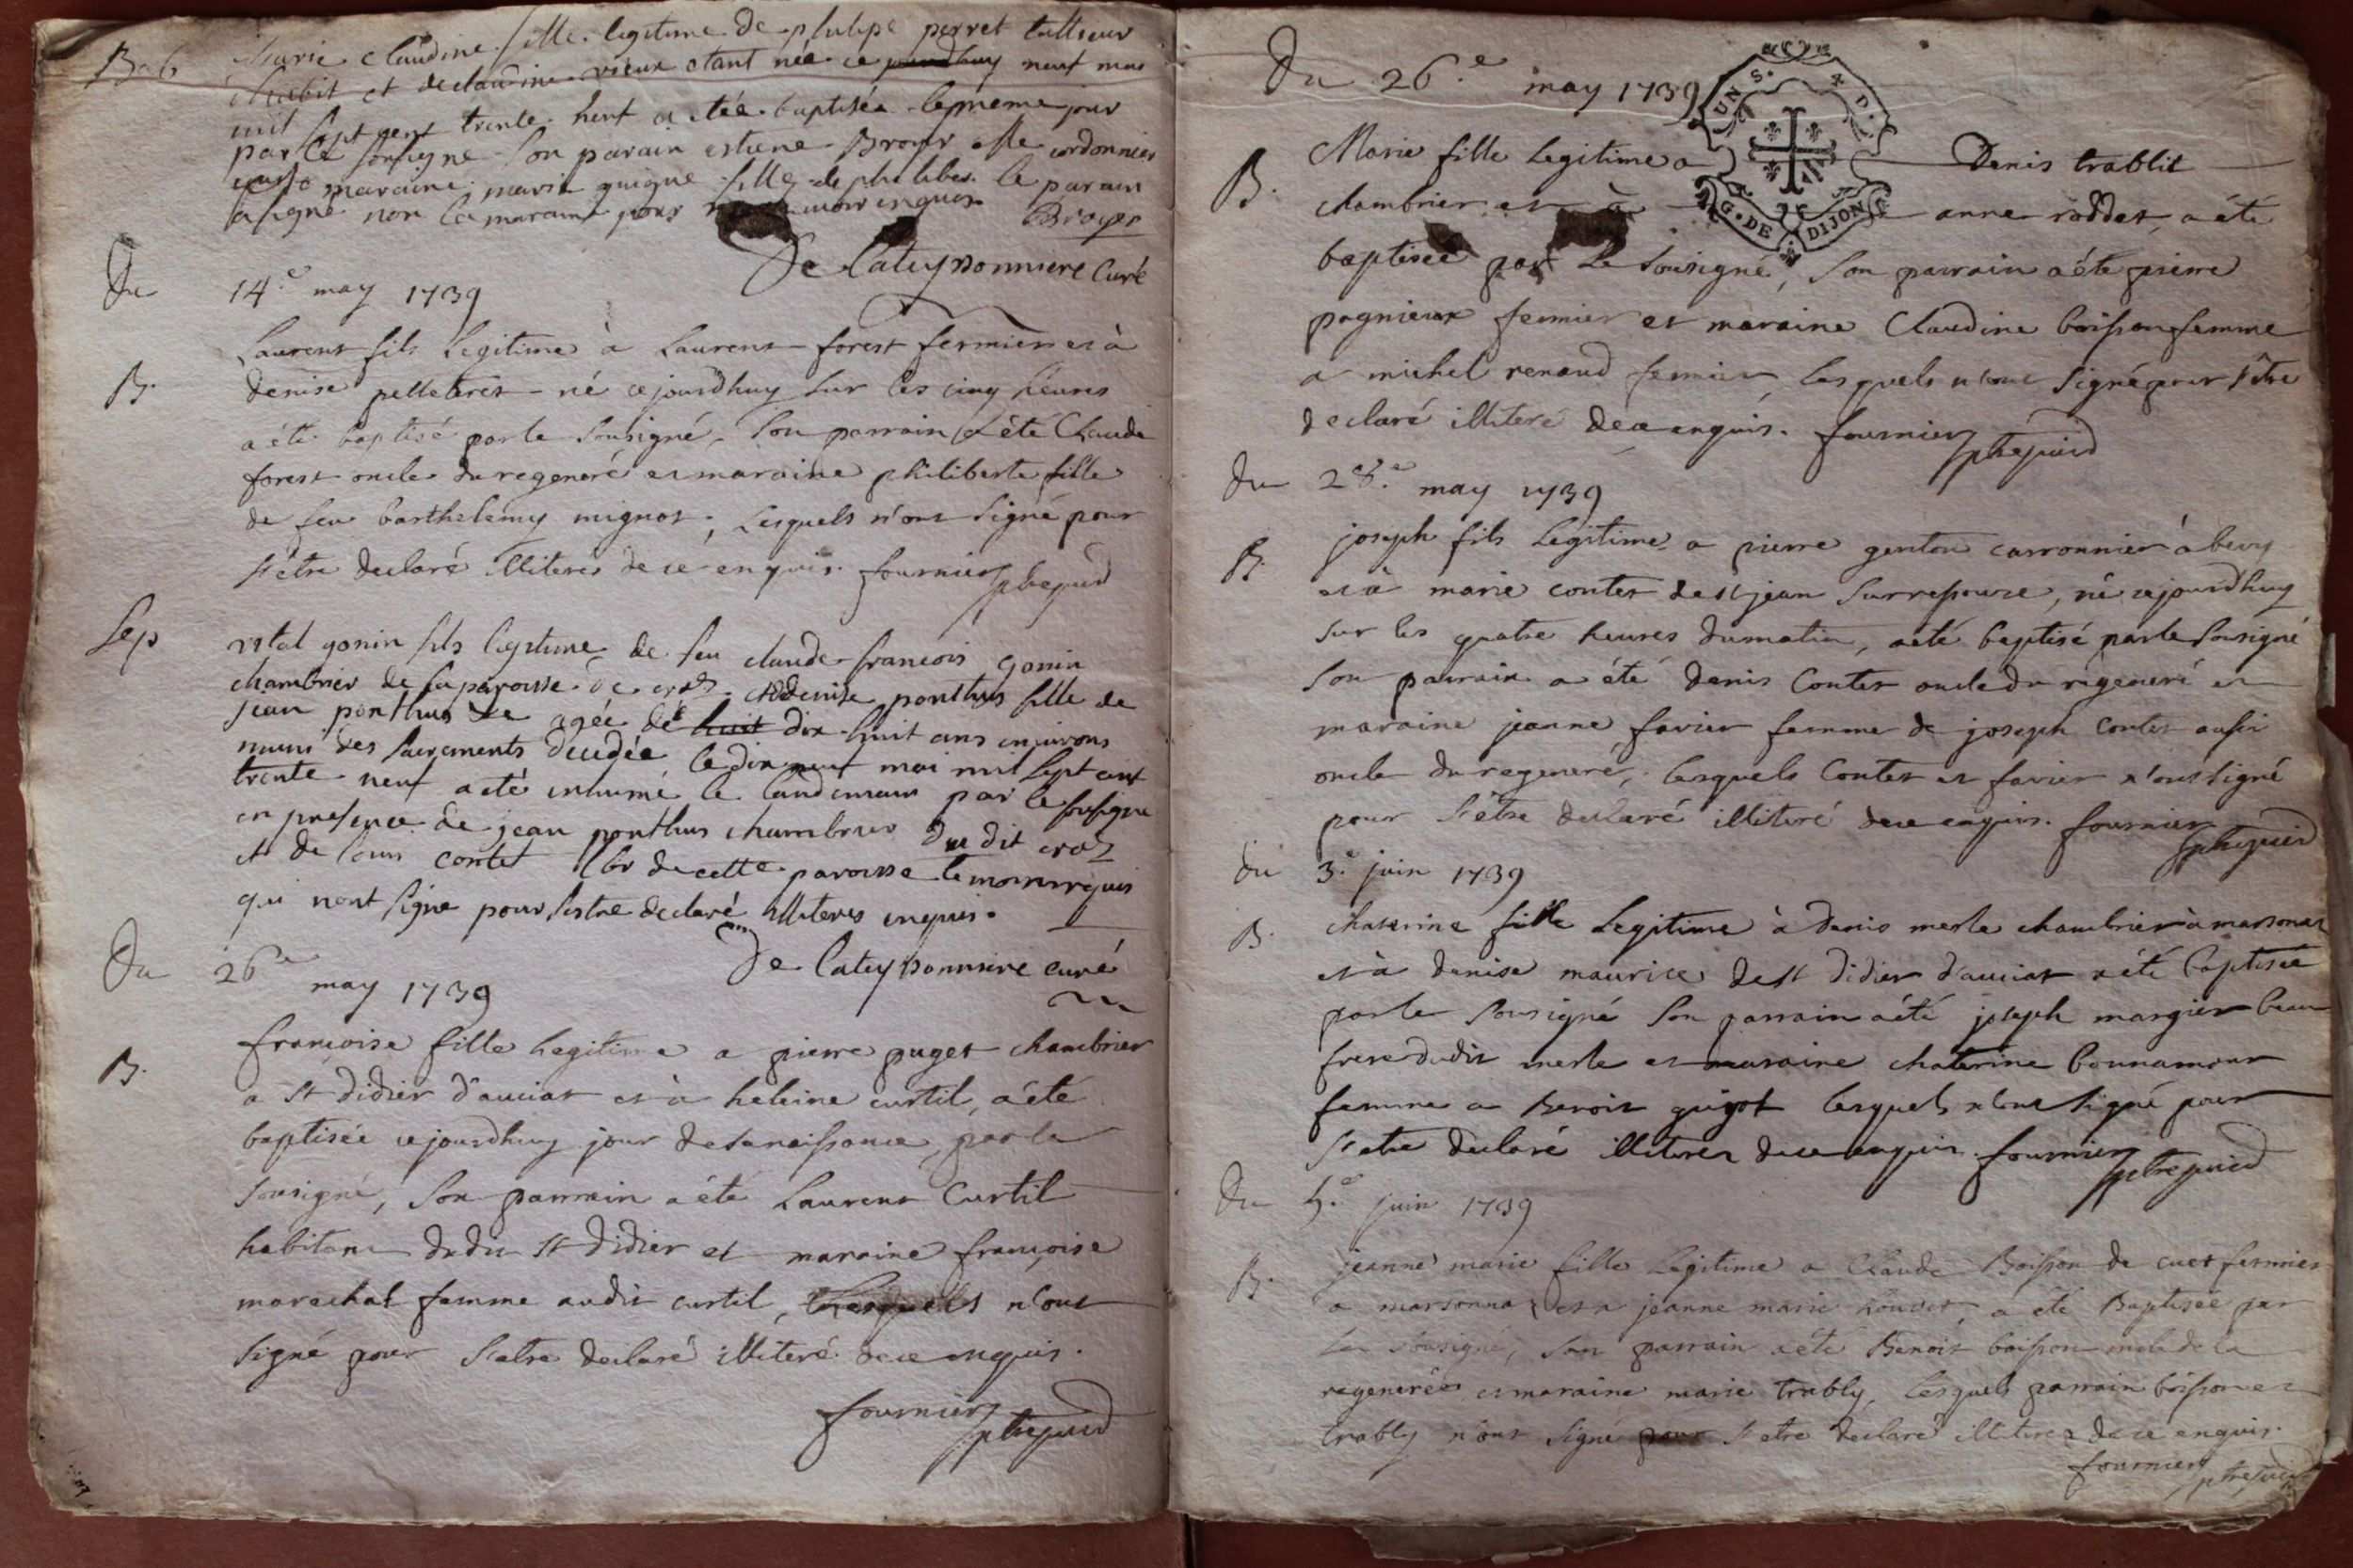 Bab Marie claudine fille legitime de philipe perret tallieur
d'habit et de claudine vieux etant née ce jourdhuy neuf mai
mil sept cent trente neuf a etée baptisée le meme jour
par le soussigne son parain estiene Broyer Me cordonnier
maraine marie guigue fille de philibert le parain
a signé non la maraine pour enquis Broyer
De Lateyssonniere Curé
Du 14.e may 1739
B. Laurent fils Legitime à Laurent forest fermier et à
denise pelleteret né cejourdhuy sur les cinq heures
a été baptisé par le sousigné, son parrain a été Claude
forest oncle du regeneré et maraine philiberte fille
de feu barthelemy mignot, lesquels n'ont signé pour
s'etre declaré illiterés de ce enquis. fournier
Sep vital gonin fils legitime de feu claude francois gonin
chambrier de la paroisse de croz et denise ponthus fille de
jean ponthus agée de huit dix huit ans environs
muni des sacrements decedée le dix neuf mai mil sept cent
trente neuf a eté inhumé le landemain par le sousigne
en presence de jean ponthus chambrier du dit croz
et de contet de cette paroisse temoins requis
qui nont signe pour sestre declaré illiteres enquis.
De Lateyssonniere curé
Du 26e may 1739
B. françoise fille Legitime a pierre puget chambrier
a st didier d'auciat et à heleine curtil, a été
baptisée cejourdhuy jour de sa naissance, par le
sousigné, son parrain a été Laurent Curtil
habitant dudit st didier et maraine françoise
marechal femme audit curtil, lesquels n'ont
signé pour s'etre declaré illiteré de ce enquis.
fournier
Du 26.e may 1739
UNS. X D. G. DE DIJON
B. Marie fille Legitime a Denis trablit
chambrier et à anne roddet, a été
baptisée par le sousigné, son parrain a été pierre
pagnieux fermier et maraine Claudine boisson femme
a michel renaud fermier, lesquels n'ont signé pour s'être
declaré illiteré de ce enquis. fournier
du 28.e may 1739
B. joseph fils Legitime a pierre genton carronnier à beny
et à marie contet de st jean sur ressouze, né cejourdhuy
sur les quatre heures du matin, a été baptisé par le sousigné
son parrain a été denis Contet oncle du régeneré et
maraine jeanne favier femme de joseph contet aussi
oncle du regeneré, lesquels Contet et favier n'ont signé
pour s'être declaré illiteré de ce enquis. fournier
du 3.e juin 1739
B. chaterine fille Legitime à denis merle chambrier à marsonat
et à denise maurice de st didier d'auciat a été baptisée
par le sousigné son parrain a été joseph mangier beau
frere dudit merle et maraine chaterine bonnamour
femme a Benoit guigot lesquels n'ont signé pour
s'etre declaré illiterez de ce enquis. fournier
Du 5.e juin 1739
B. jeanne marie fille Legitime a Claude Boisson de cuet fermier
a marsonna et a jeanne marie , a été Baptisée par
Le sousigné, son parrain a été Benoit boisson oncle de la
regenerée et maraine marie trably, lesquels parrain boisson et
trably n'ont signé pour s'etre declaré illiterez de ce enquis.
fournier